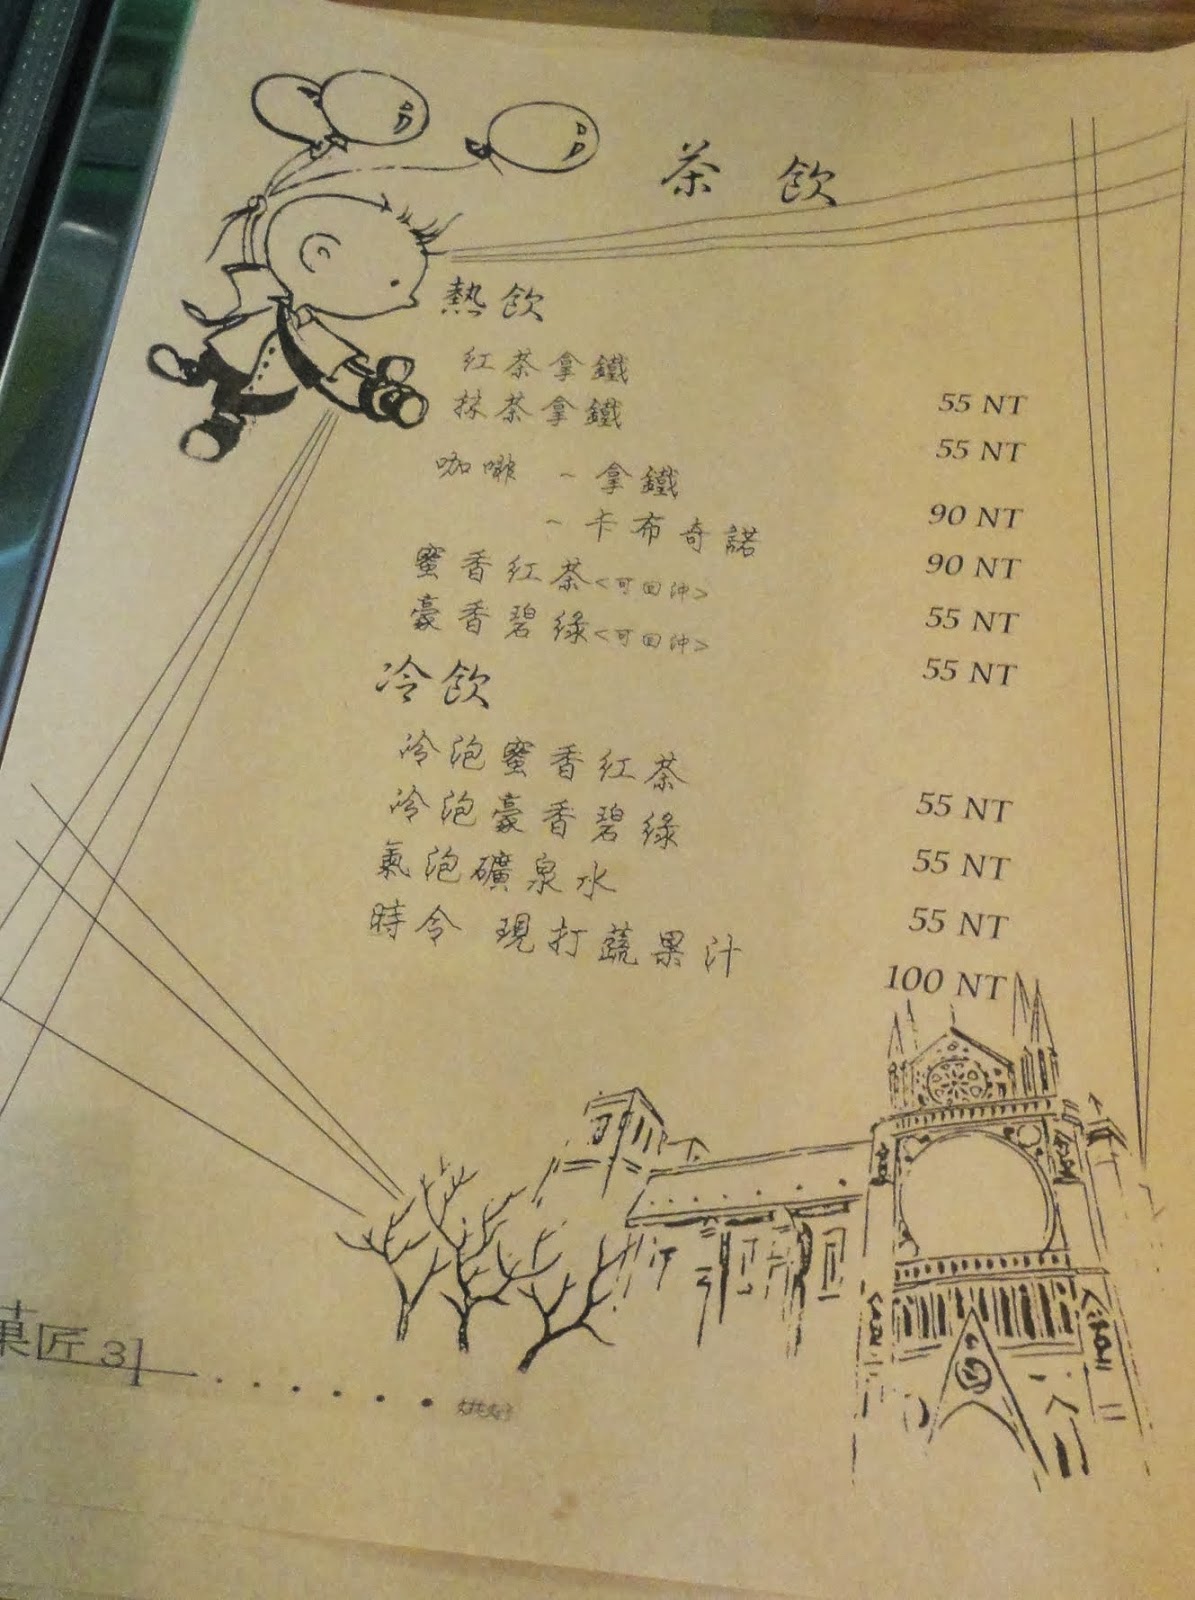 茶飲
熱飲
紅茶拿鐵 55 NT
抹茶拿鐵 55 NT
咖啡 ~拿鐵 90 NT
~卡布奇諾 90 NT
蜜香紅茶<可回沖> 55 NT
豪香碧綠<可回沖> 55 NT
冷飲
冷泡蜜香紅茶 55 NT
冷泡豪香碧綠 55 NT
氣泡礦泉水 55 NT
時令 現打蔬果汁 100 NT
菓匠 31